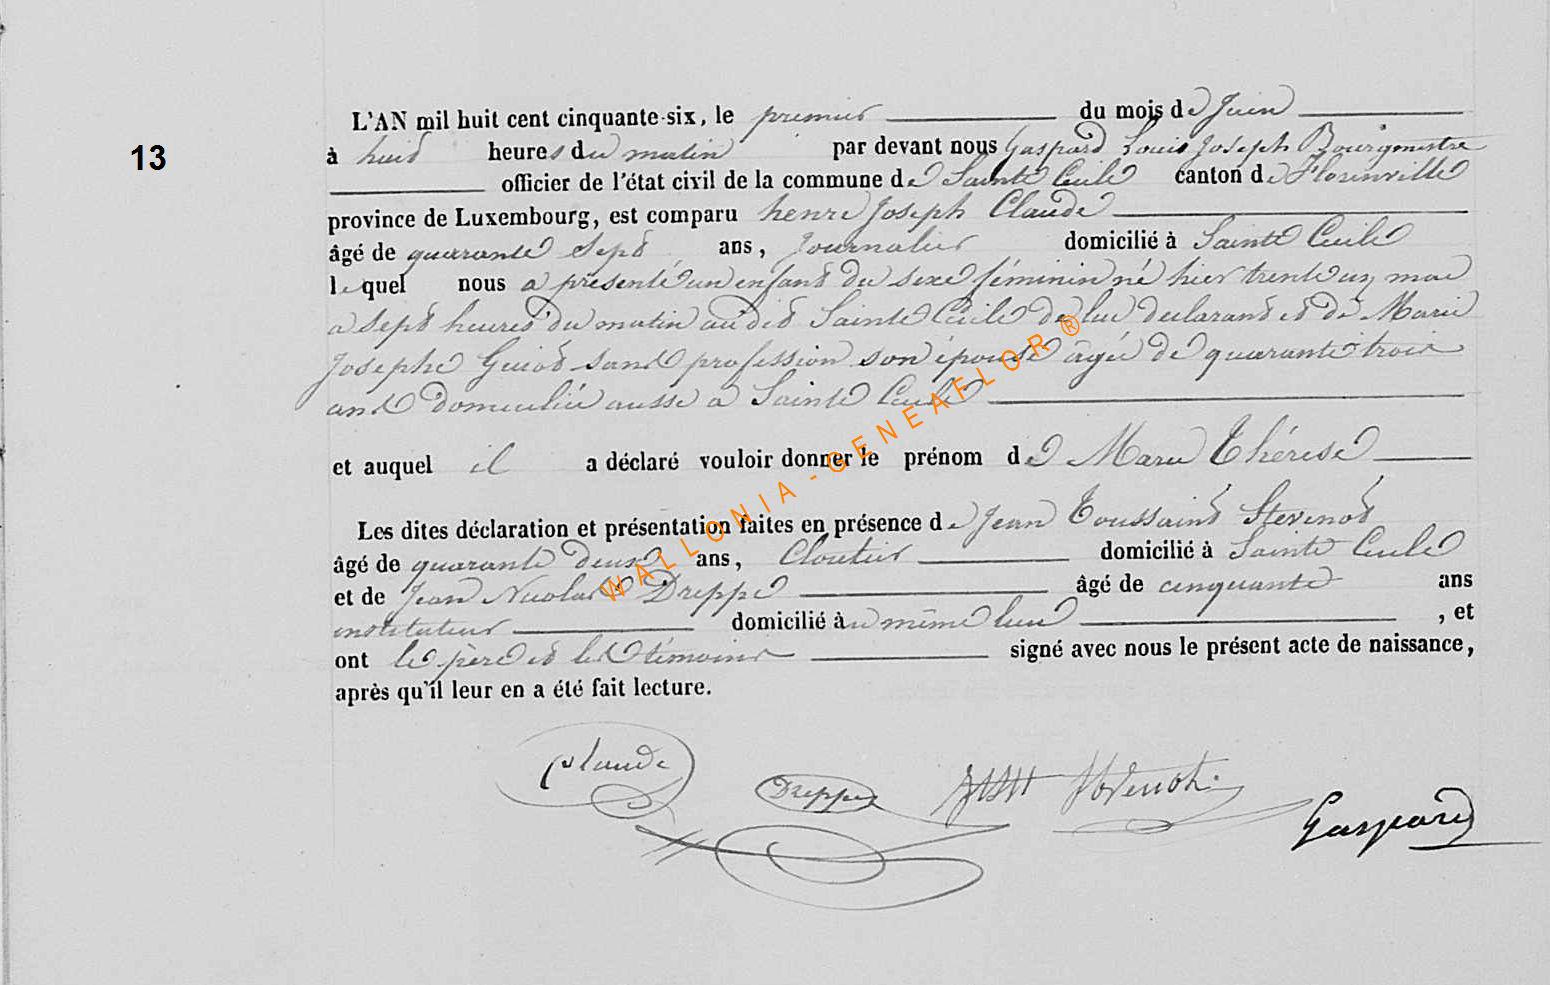 13
L'AN mil huit cent cinquante-six, le premier du mois de Juin
à huit heures du matin par devant nous Gaspard Louis Joseph Bourgmestre
officier de l'état civil de la commune de Sainte Cécile canton de Florenville
province de Luxembourg, est comparu henri Joseph Claude
âgé de quarante Sept ans, Journalier domicilié à Sainte Cécile
lequel nous a présenté un enfant du sexe féminin né hier trente un mai
a Sept heures du matin au dit Sainte Cécile de lui declarant et de Marie
Josephe Guiot sans profession son épouse agée de quarante trois
ans domiciliée aussi a Sainte Cécile
et auquel il a déclaré vouloir donner le prénom de Marie Thérèse
Les dites déclaration et présentation faites en présence de Jean Toussaint Stevenot
âgé de quarante deux ans, Cloutier domicilié à Sainte Cécile
et de Jean Nicolas Dreppe âgé de cinquante ans
instituteur domicilié au même lieu , et
ont le père et les témoins signé avec nous le présent acte de naissance,
après qu'il leur en a été fait lecture.
WALLONIA-GENEAFLOR®
Claude
Dreppe
Stevenot
Gaspard